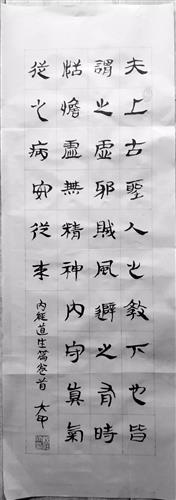 夫上古聖人之教下也皆
謂之虛邪賊風避之有時
恬憺虛無精神內守眞氣
從之病安從來
內經道生篇卷首